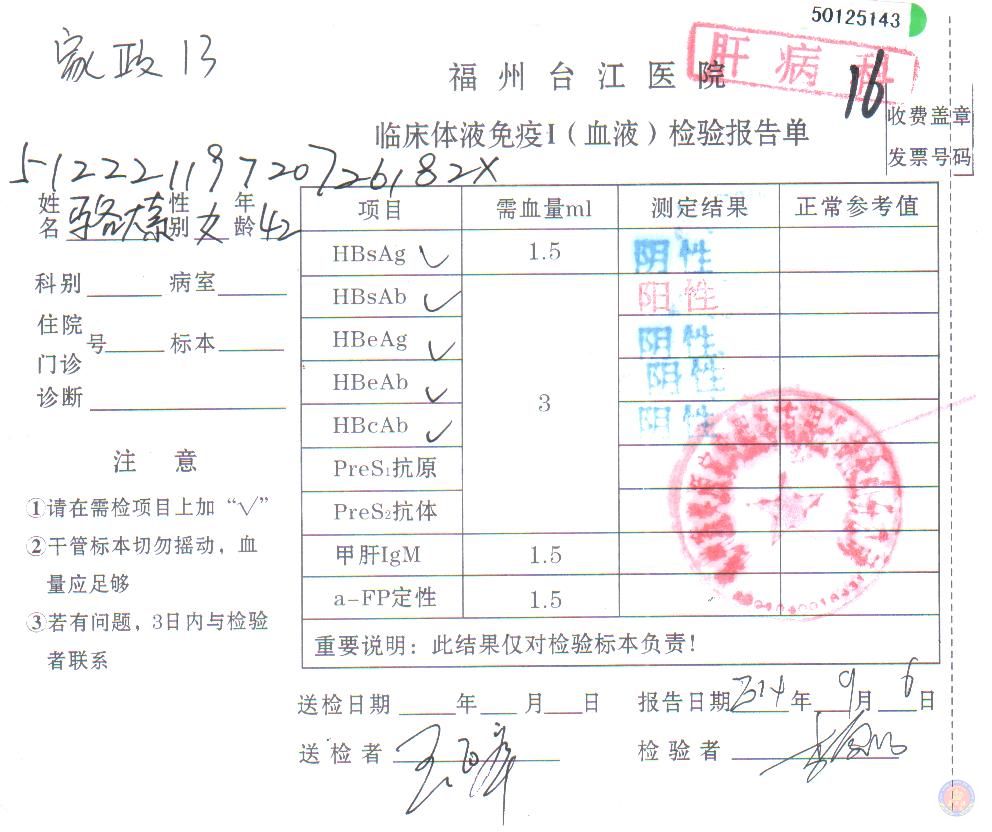 50125143
家政13
福州台江医院
肝病科
16
收费盖章
发票号码
临床体液免疫I（血液）检验报告单
51222119720726182X
姓名 骆大素 性别 女 年龄 42
科别 病室
住院
门诊 号 标本
诊断
注 意
①请在需检项目上加“√”
②干管标本切勿摇动，血
量应足够
③若有问题，3日内与检验
者联系
项目 需血量ml 测定结果 正常参考值
HBsAg √ 1.5 阴性
HBsAb √ 3 阳性
HBeAg √ 阴性
HBeAb √ 阴性
HBcAb √ 阴性
PreS₁抗原
PreS₂抗体
甲肝IgM 1.5
a-FP定性 1.5
重要说明：此结果仅对检验标本负责！
送检日期 年 月 日 报告日期 2014 年 9 月 6 日
送检者 检验者